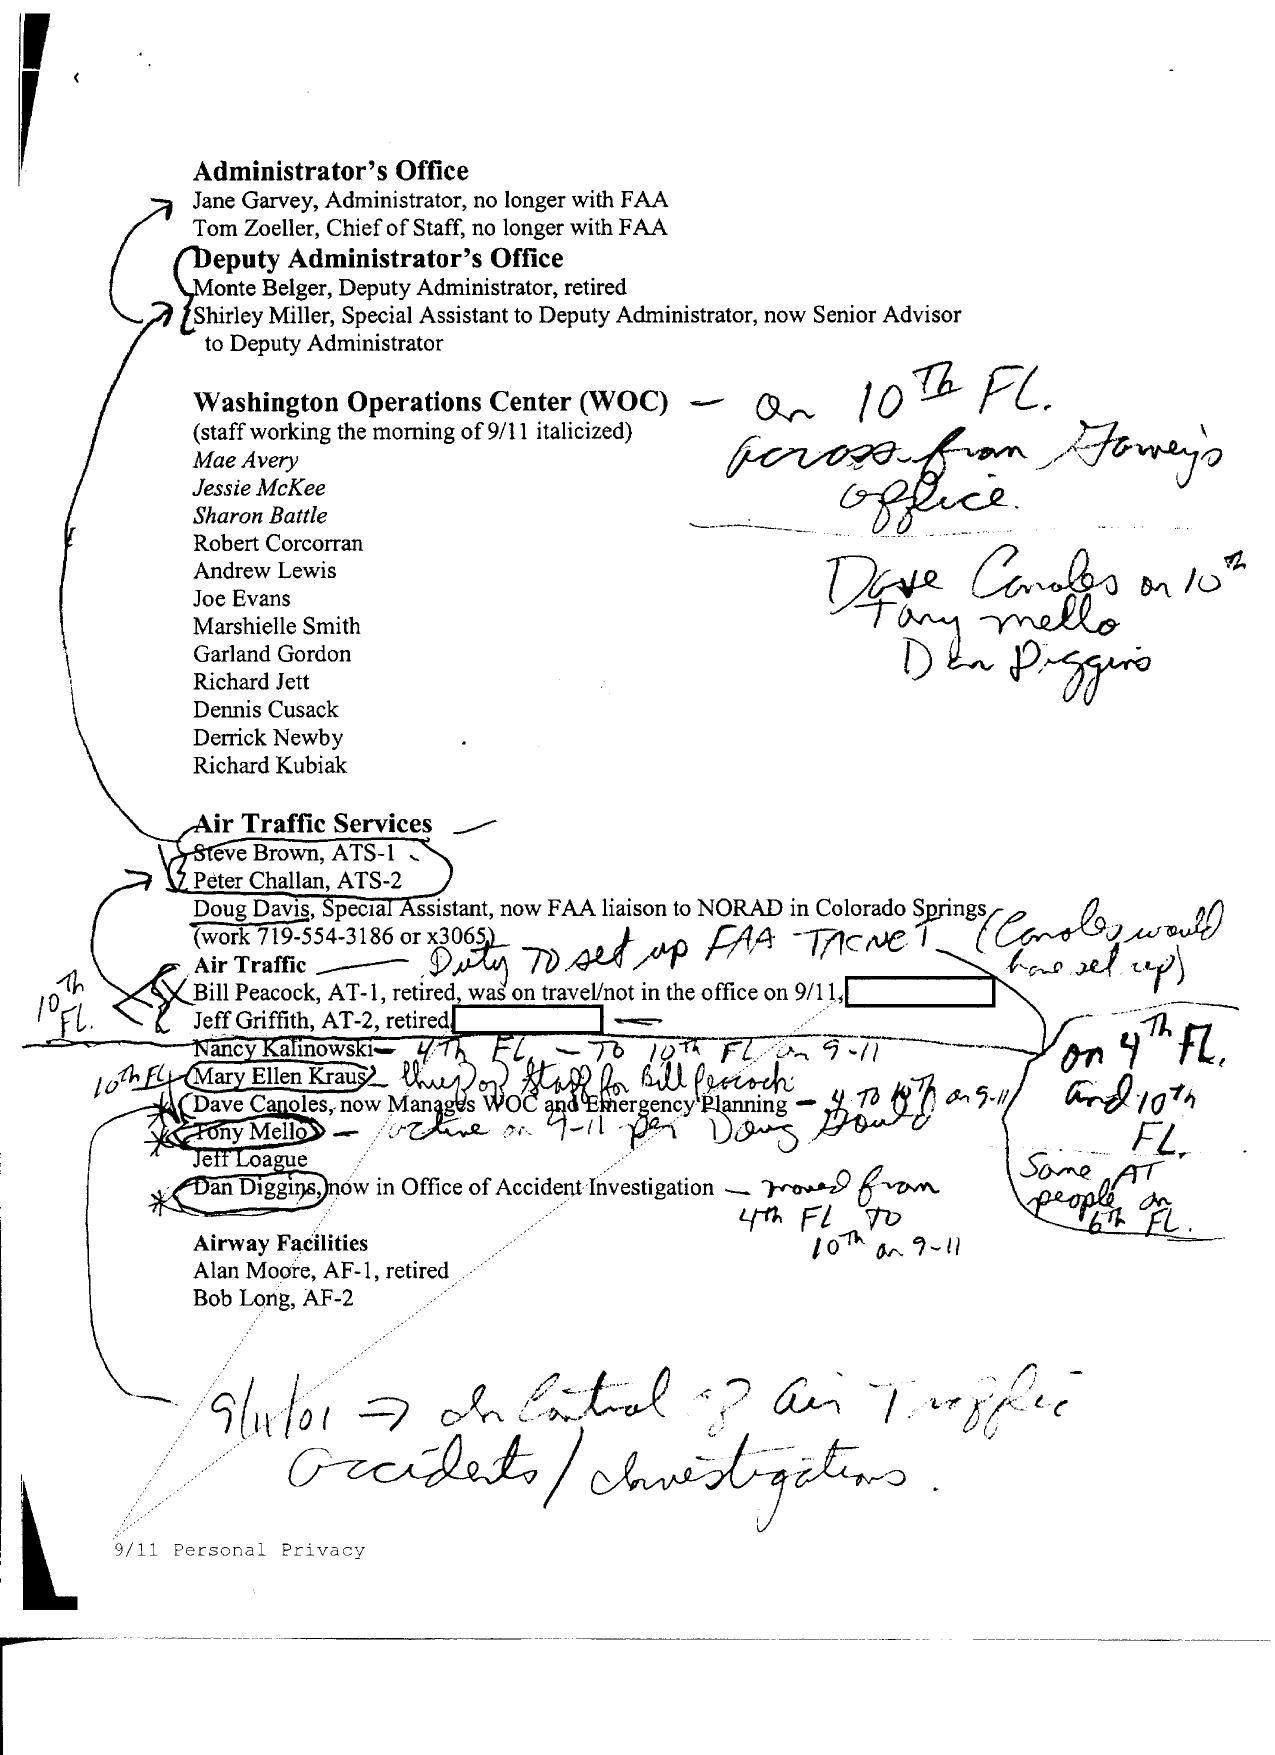 Administrator's Office
Jane Garvey, Administrator, no longer with FAA
Tom Zoeller, Chief of Staff, no longer with FAA
Deputy Administrator's Office
Monte Belger, Deputy Administrator, retired
Shirley Miller, Special Assistant to Deputy Administrator, now Senior Advisor
to Deputy Administrator
Washington Operations Center (WOC) – on 10th FL.
across from Garvey's
office.
(staff working the morning of 9/11 italicized)
Mae Avery
Jessie McKee
Sharon Battle
Robert Corcorran
Andrew Lewis
Joe Evans
Marshielle Smith
Garland Gordon
Richard Jett
Dennis Cusack
Derrick Newby
Richard Kubiak
Dave Canoles on 10th
Tony mello
Dan Diggins
Air Traffic Services –
Steve Brown, ATS-1
Peter Challan, ATS-2
Doug Davis, Special Assistant, now FAA liaison to NORAD in Colorado Springs
(work 719-554-3186 or x3065)
Air Traffic — Duty to set up FAA TACNET (Canoles would
have set up)
10th
FL.
Bill Peacock, AT-1, retired, was on travel/not in the office on 9/11,
Jeff Griffith, AT-2, retired
Nancy Kalinowski – 4th FL. – To 10th FL on 9-11
10th FL Mary Ellen Kraus chief of Staff for Bill Peacock
Dave Canoles, now Manages WOC and Emergency Planning – 4 to 10th on 9-11
Tony Mello – active on 9-11 per Doug Gould
Jeff Loague
Dan Diggins, now in Office of Accident Investigation – moved from
4th FL to
10th on 9-11
on 4th FL.
and 10th
FL.
Some AT
people on
6th FL.
Airway Facilities
Alan Moore, AF-1, retired
Bob Long, AF-2
9/11/01 → In Control of Air Traffic
accidents/Investigations.
9/11 Personal Privacy